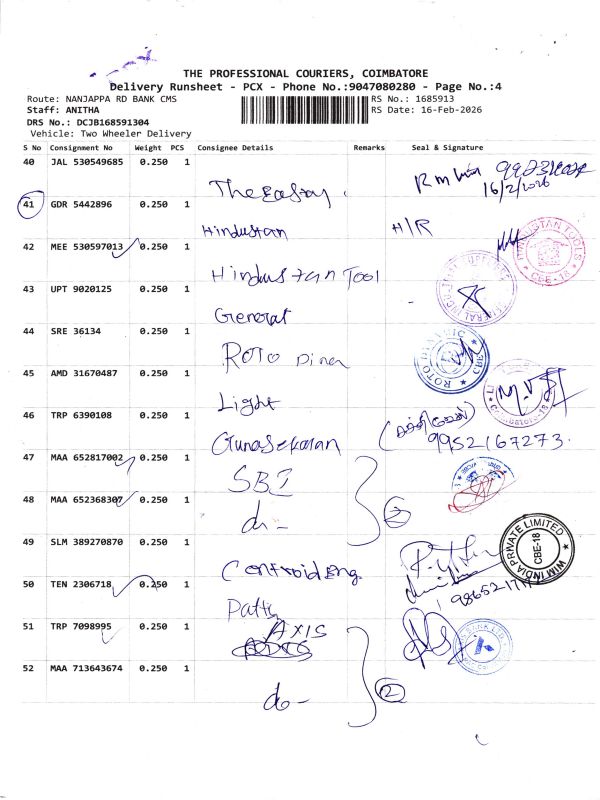 THE PROFESSIONAL COURIERS, COIMBATORE
Delivery Runsheet - PCX - Phone No.:9047080280 - Page No.:4
Route: NANJAPPA RD BANK CMS RS No.: 1685913
Staff: ANITHA RS Date: 16-Feb-2026
DRS No.: DCJB168591304
Vehicle: Two Wheeler Delivery
S No Consignment No Weight PCS Consignee Details Remarks Seal & Signature
40 JAL 530549685 0.250 1
16/2/2026
41 GDR 5442896 0.250 1 Hindustan H/R
42 MEE 530597013 0.250 1 Hindustan Tool
HINDUSTAN TOOLS CBE-18
43 UPT 9020125 0.250 1 General
44 SRE 36134 0.250 1 Roto
ROTO DYNAMIC CBE
45 AMD 31670487 0.250 1 Light
46 TRP 6390108 0.250 1 Gunasekaran 9952167273.
47 MAA 652817002 0.250 1 SBI
48 MAA 652368307 0.250 1 do - 2
49 SLM 389270870 0.250 1
WIM INDIA PRIVATE LIMITED CBE-18
50 TEN 2306718 0.250 1
51 TRP 7098995 0.250 1 AXIS
52 MAA 713643674 0.250 1 do - 2